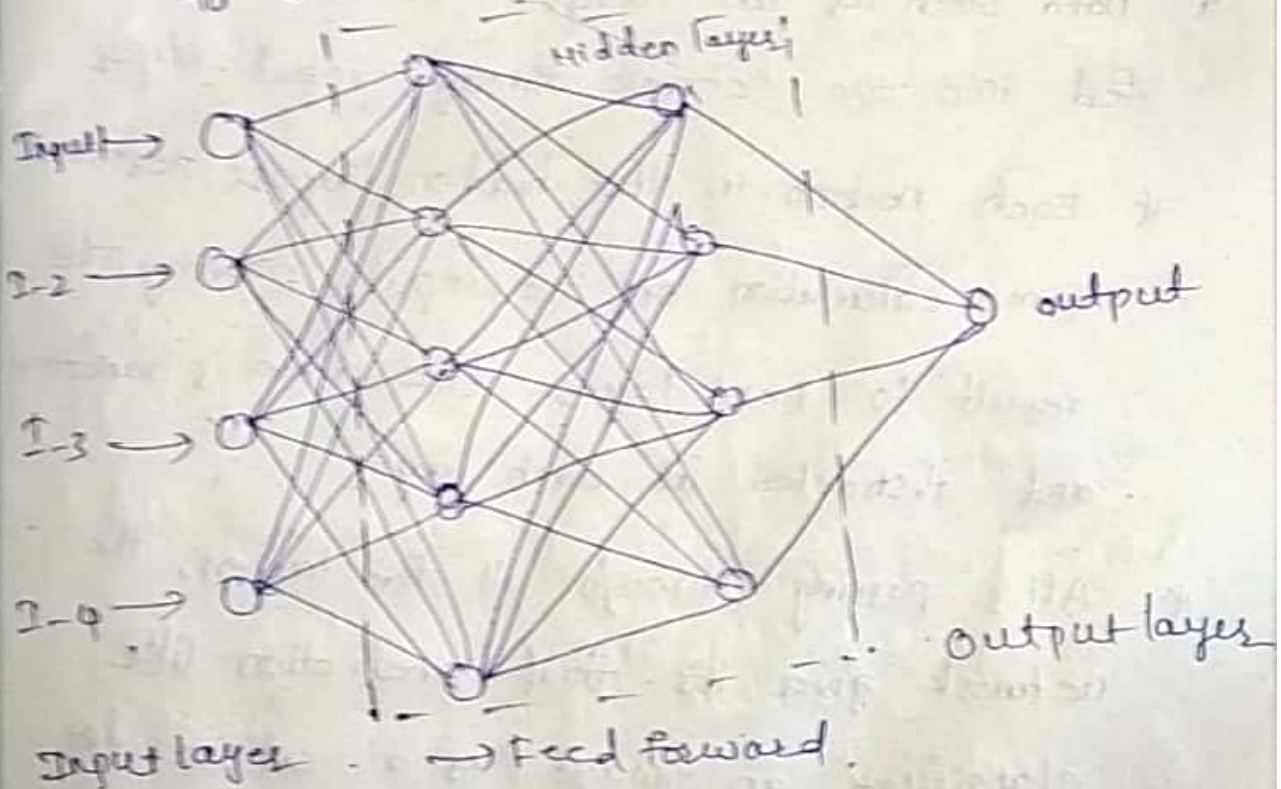 Hidden layer
Input1 →
I-2 →
output
I-3 →
I-4 →
Output layer
Input layer → Feed forward.